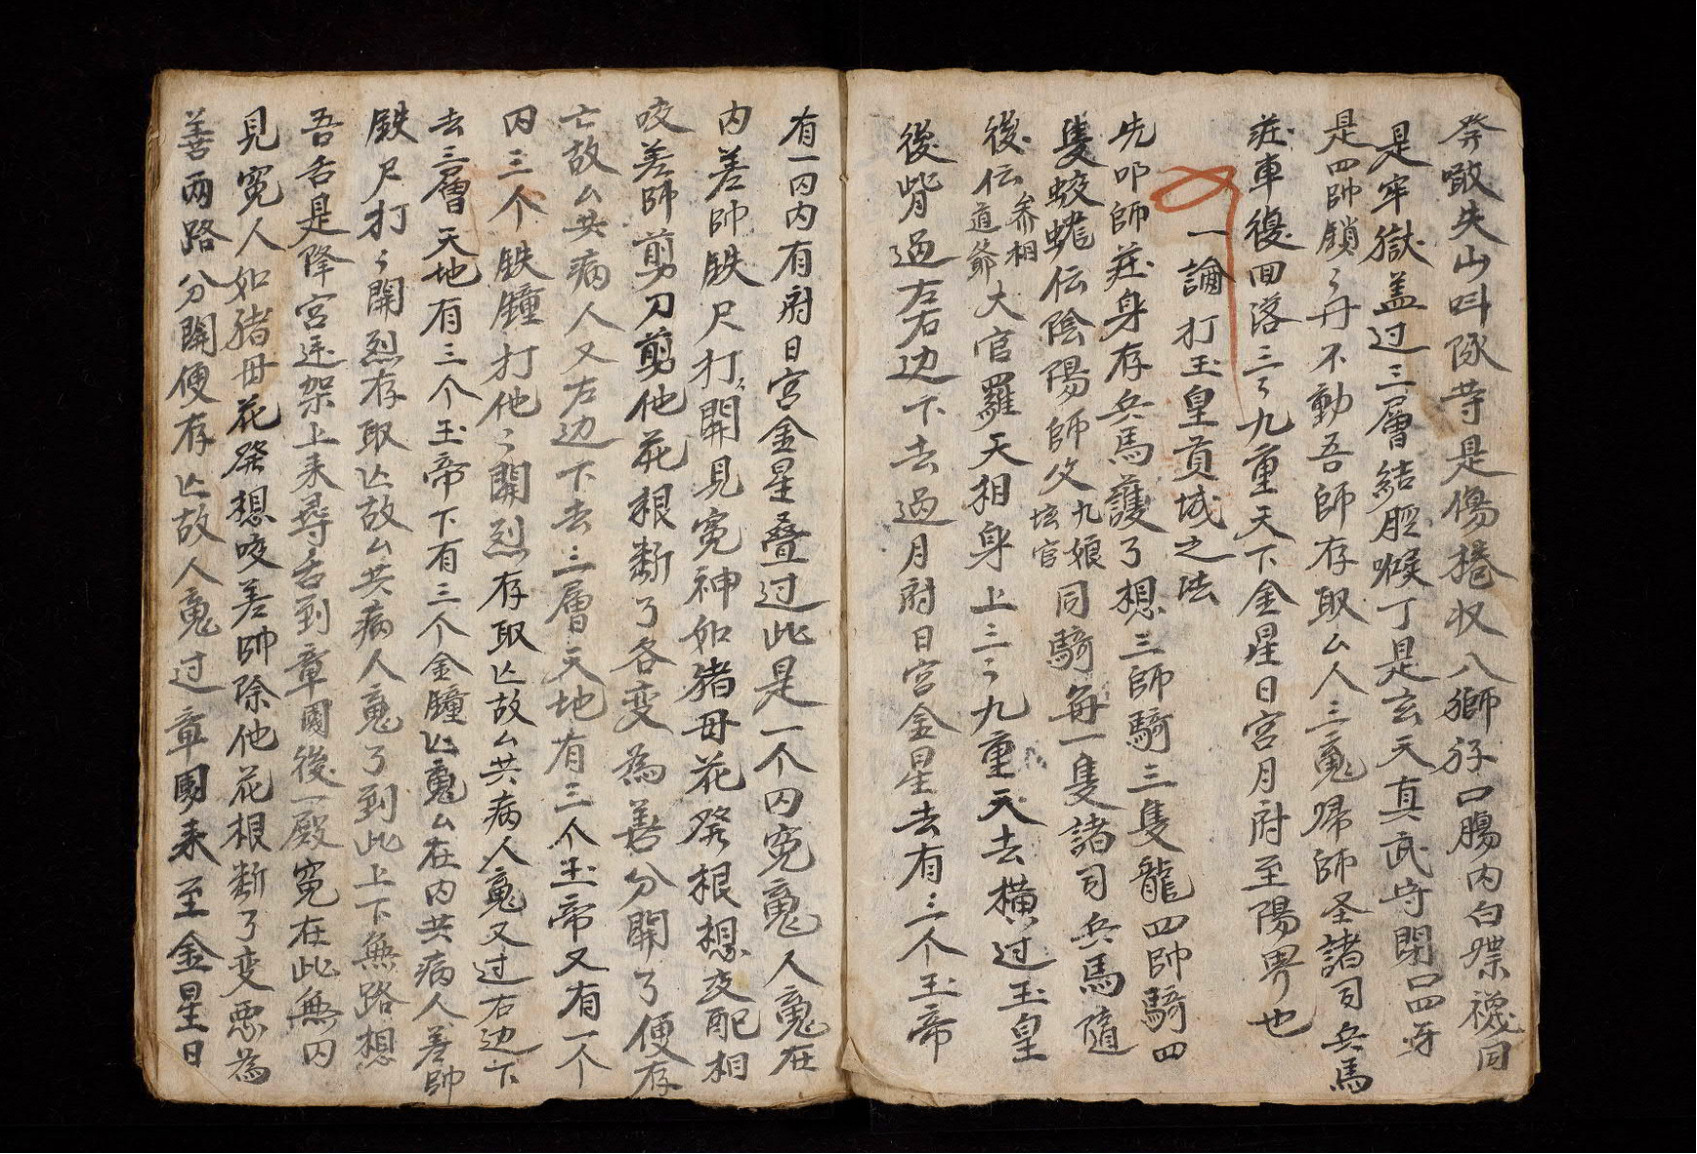 癸噉失山呌隊苛是傷捲汉八獅孖口膓内白㗖禭同
是牢獄盖过三層結脛喉丁是玄天真武守閉口四牙
是四帥鎖〻丹不動吾師存取厶人三䰟㷌師圣諸司兵馬
莊車復回落三〻九重天下金星日宮月府至陽界也
一論打玉皇貢城之法
先叩師莊身存兵馬護了想三師騎三隻龍四帥騎四
隻蛟蟾伝陰陽師父九娘坛官同騎每一隻諸司兵馬隨
後伝参相道爺大官羅天相身上三〻九重天去橫过玉皇
後背過左右边下去過月府日宮金星去有三个玉帝
有一囚内有府日宮金星叠过此是一个囚寃䰟人䰟在
内差帥鉄尺打〻開見寃神如猪毋花發根想交配相
咬差師剪刀剪他花根断了各变為善分開了便存
亡故厶共病人又左边下去三層天地有三个玉帝又有一个
囚三个鉄鐘打他〻開烈存取亡故厶共病人䰟又过右边下
去三層天地有三个玉帝下有三个金瞳亡䰟厶在内共病人差帥
鉄尺打〻開烈存取亡故厶共病人䰟了到此上下無路想
吾舌是降宮迋架上来尋舌到章國後一殿寃在此無囚
見寃人如猪毋花發想咬差帥除他花根断了变悪為
善两路分開便存亡故人䰟过章國来至金星日